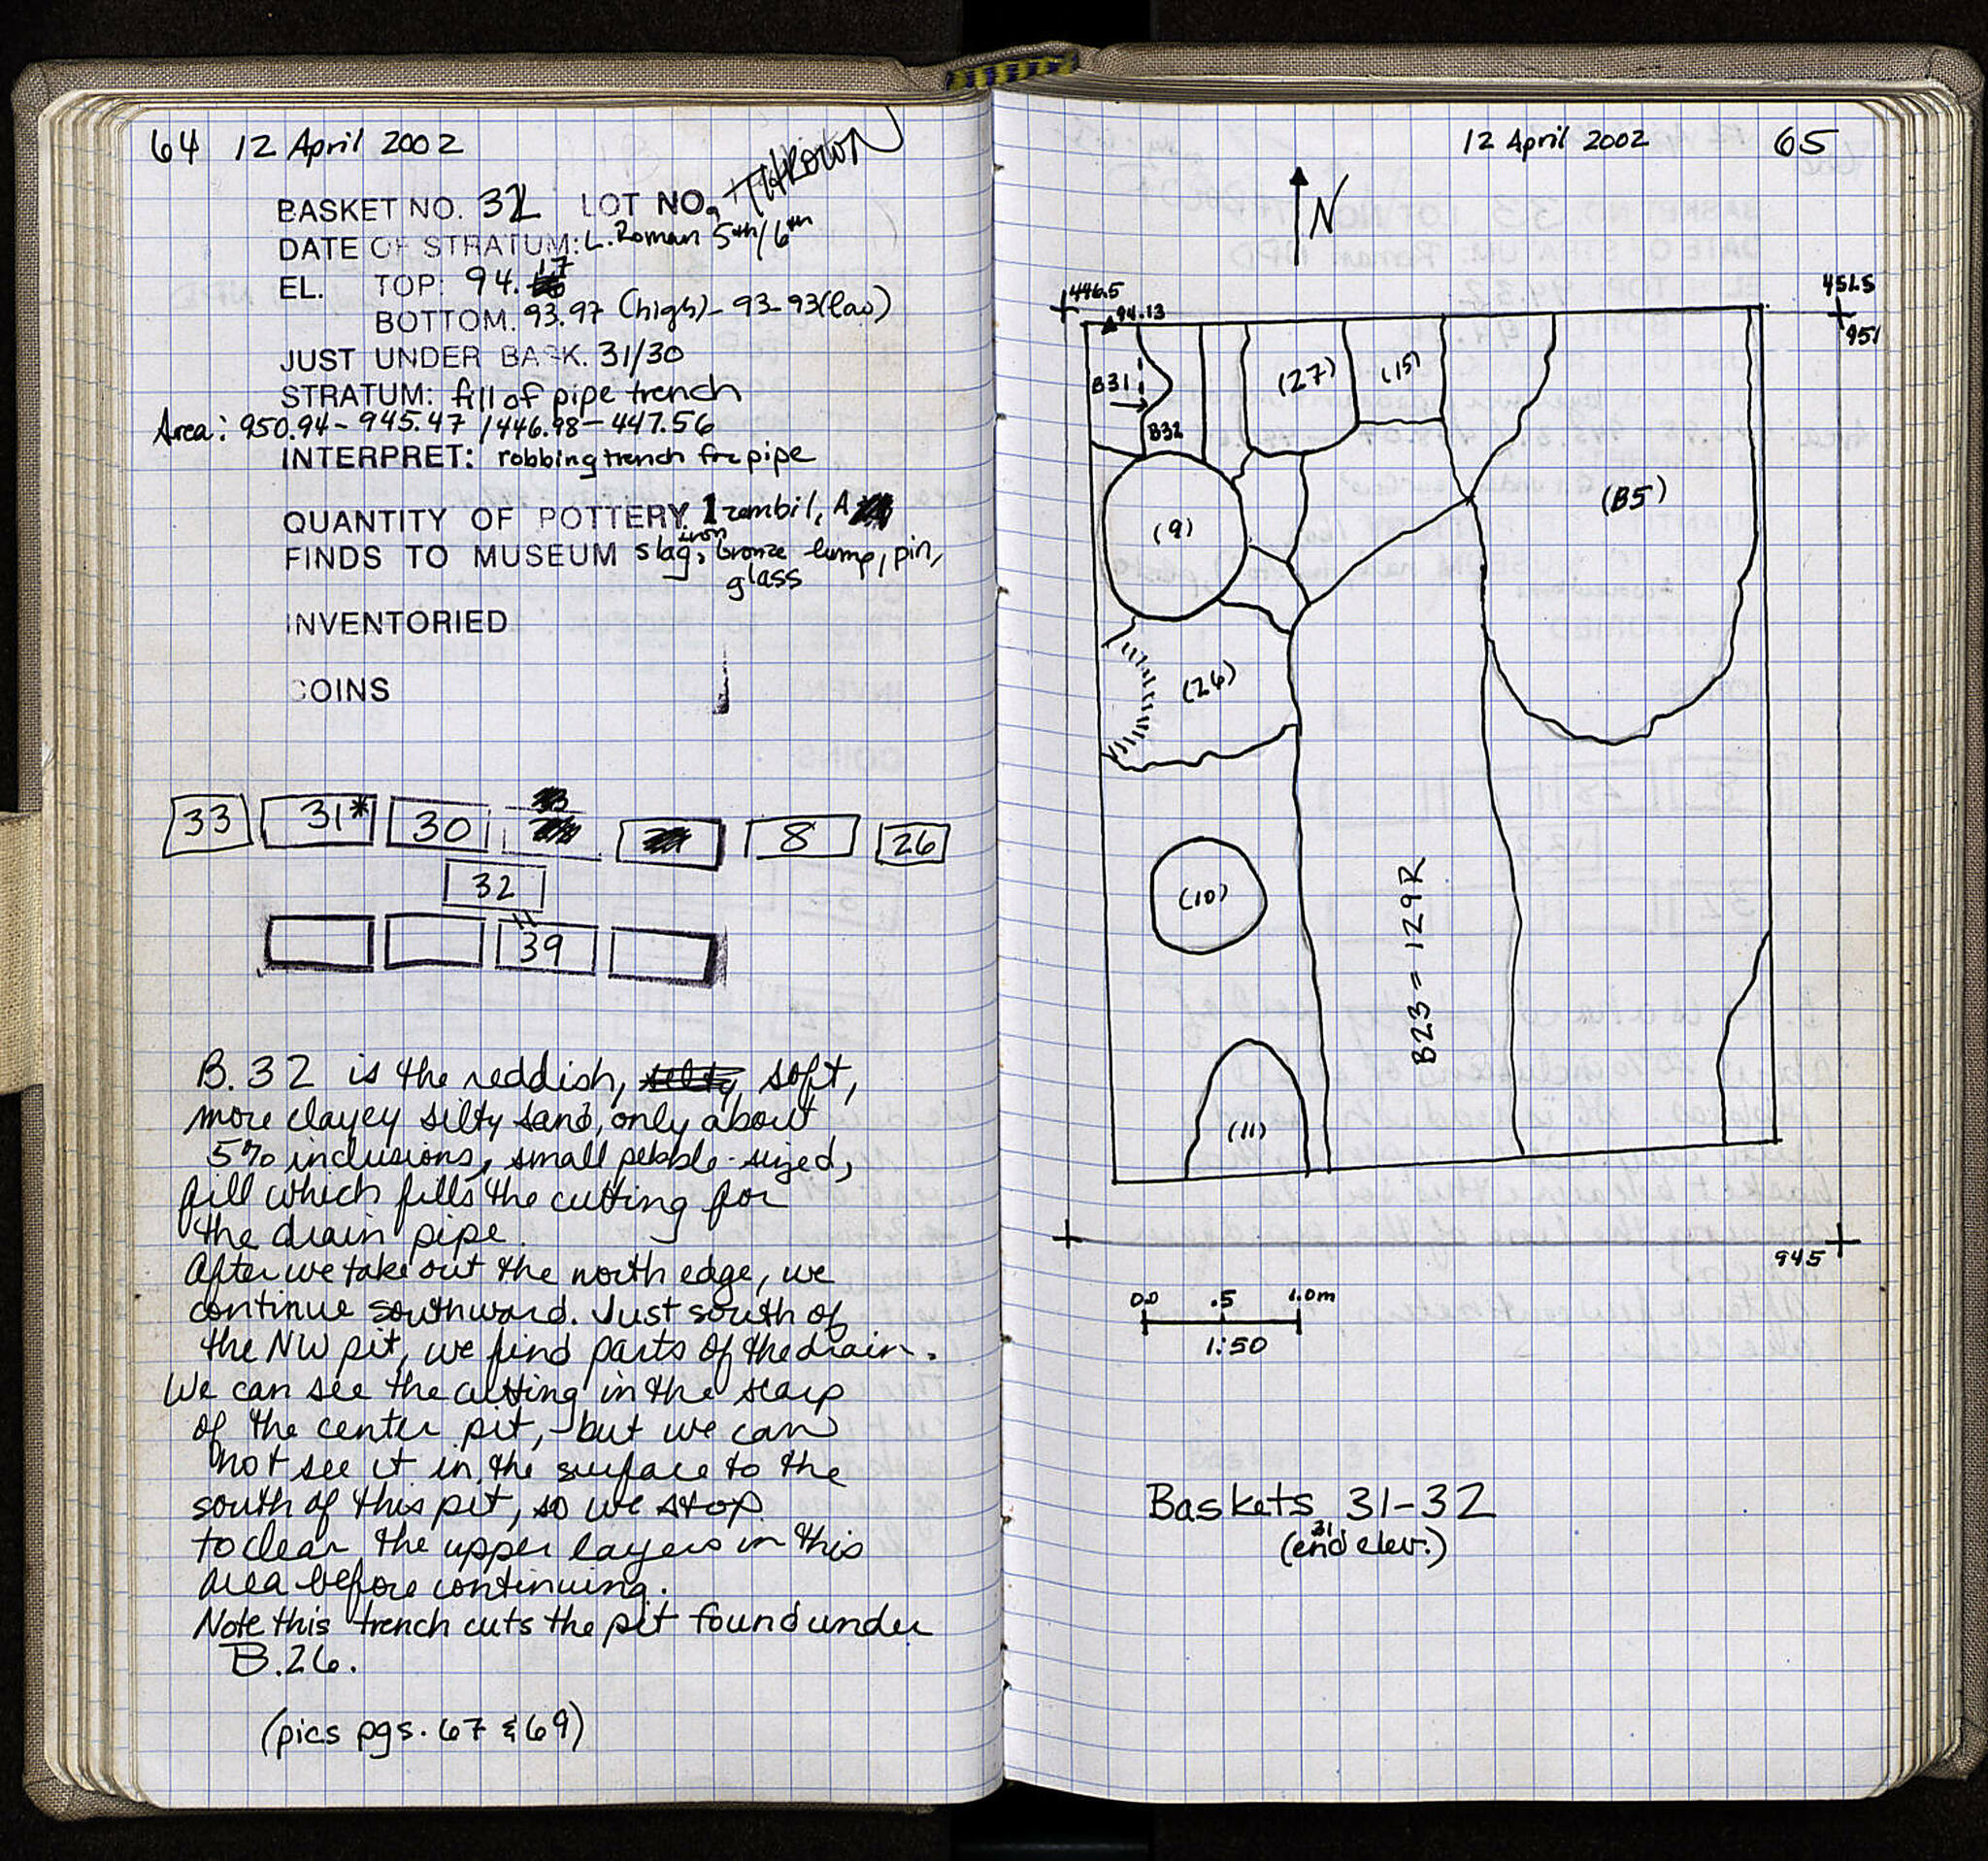 64 12 April 2002
THROWN
BASKET NO. 32 LOT NO.
DATE OF STRATUM: L. Roman 5th/6th
EL. TOP: 94.17
BOTTOM. 93.97 (high) - 93-93 (low)
JUST UNDER BASK. 31/30
STRATUM: fill of pipe trench
Area: 950.94 - 945.47 / 446.98 - 447.56
INTERPRET: robbing trench for pipe
QUANTITY OF POTTERY 1 zembil, A
FINDS TO MUSEUM slag, iron, bronze lump, pin,
glass
INVENTORIED
COINS
33 31* 30 8 26
32
39
B.32 is the reddish, silty soft,
more clayey silty sand, only about
5% inclusions, small pebble-sized,
fill which fills the cutting for
the drain pipe.
After we take out the north edge, we
continue southward. Just south of
the NW pit, we find parts of the drain.
We can see the cutting in the scarp
of the center pit, but we can
not see it in the surface to the
south of this pit, so we stop
to clear the upper layers in this
area before continuing.
Note this trench cuts the pit found under
B.26.
(pics pgs. 67 & 69)
12 April 2002 65
N
446.5
451.5
94.13
951
B31
B32
(27)
(15)
(9)
(B5)
(26)
(10)
B23 = 129R
(11)
945
0.0 .5 1.0m
1:50
Baskets 31-32
(31 end elev.)